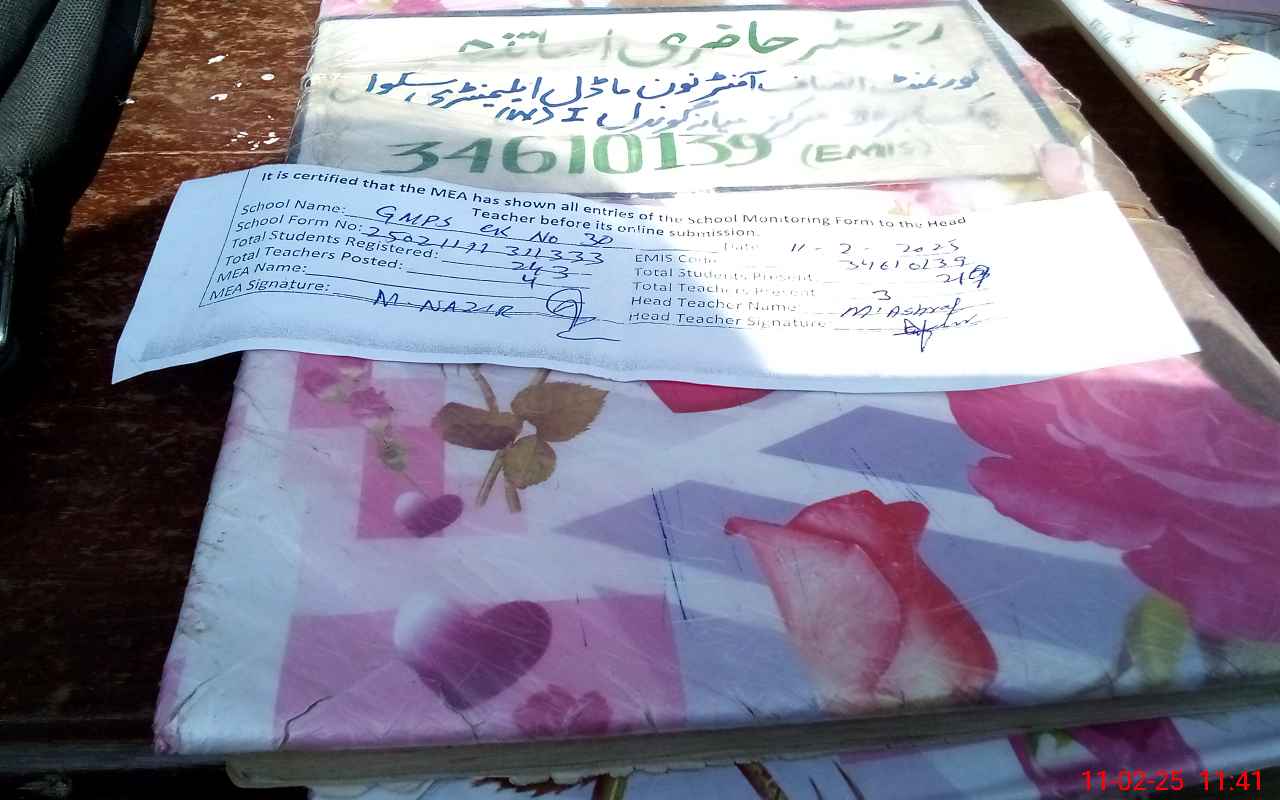 رجسٹر حاضری اساتذہ
گورنمنٹ انصاف آفٹر نون ماڈل ایلیمنٹری سکول
مرکز میانہ گوندل I (W)
34610139 (EMIS)
It is certified that the MEA has shown all entries of the School Monitoring Form to the Head
Teacher before its online submission.
School Name: GMPS CK No 30
Date 11-2-2025
School Form No:
EMIS Code 34610139
Total Students Registered: 243
Total Students Present 219
Total Teachers Posted: 4
Total Teachers Present 3
MEA Name: M. NAZIR
Head Teacher Name M. Ashraf
MEA Signature:
Head Teacher Signature
11-02-25 11:41